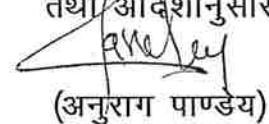 तथा आदेशानुसार
(अनुराग पाण्डेय)